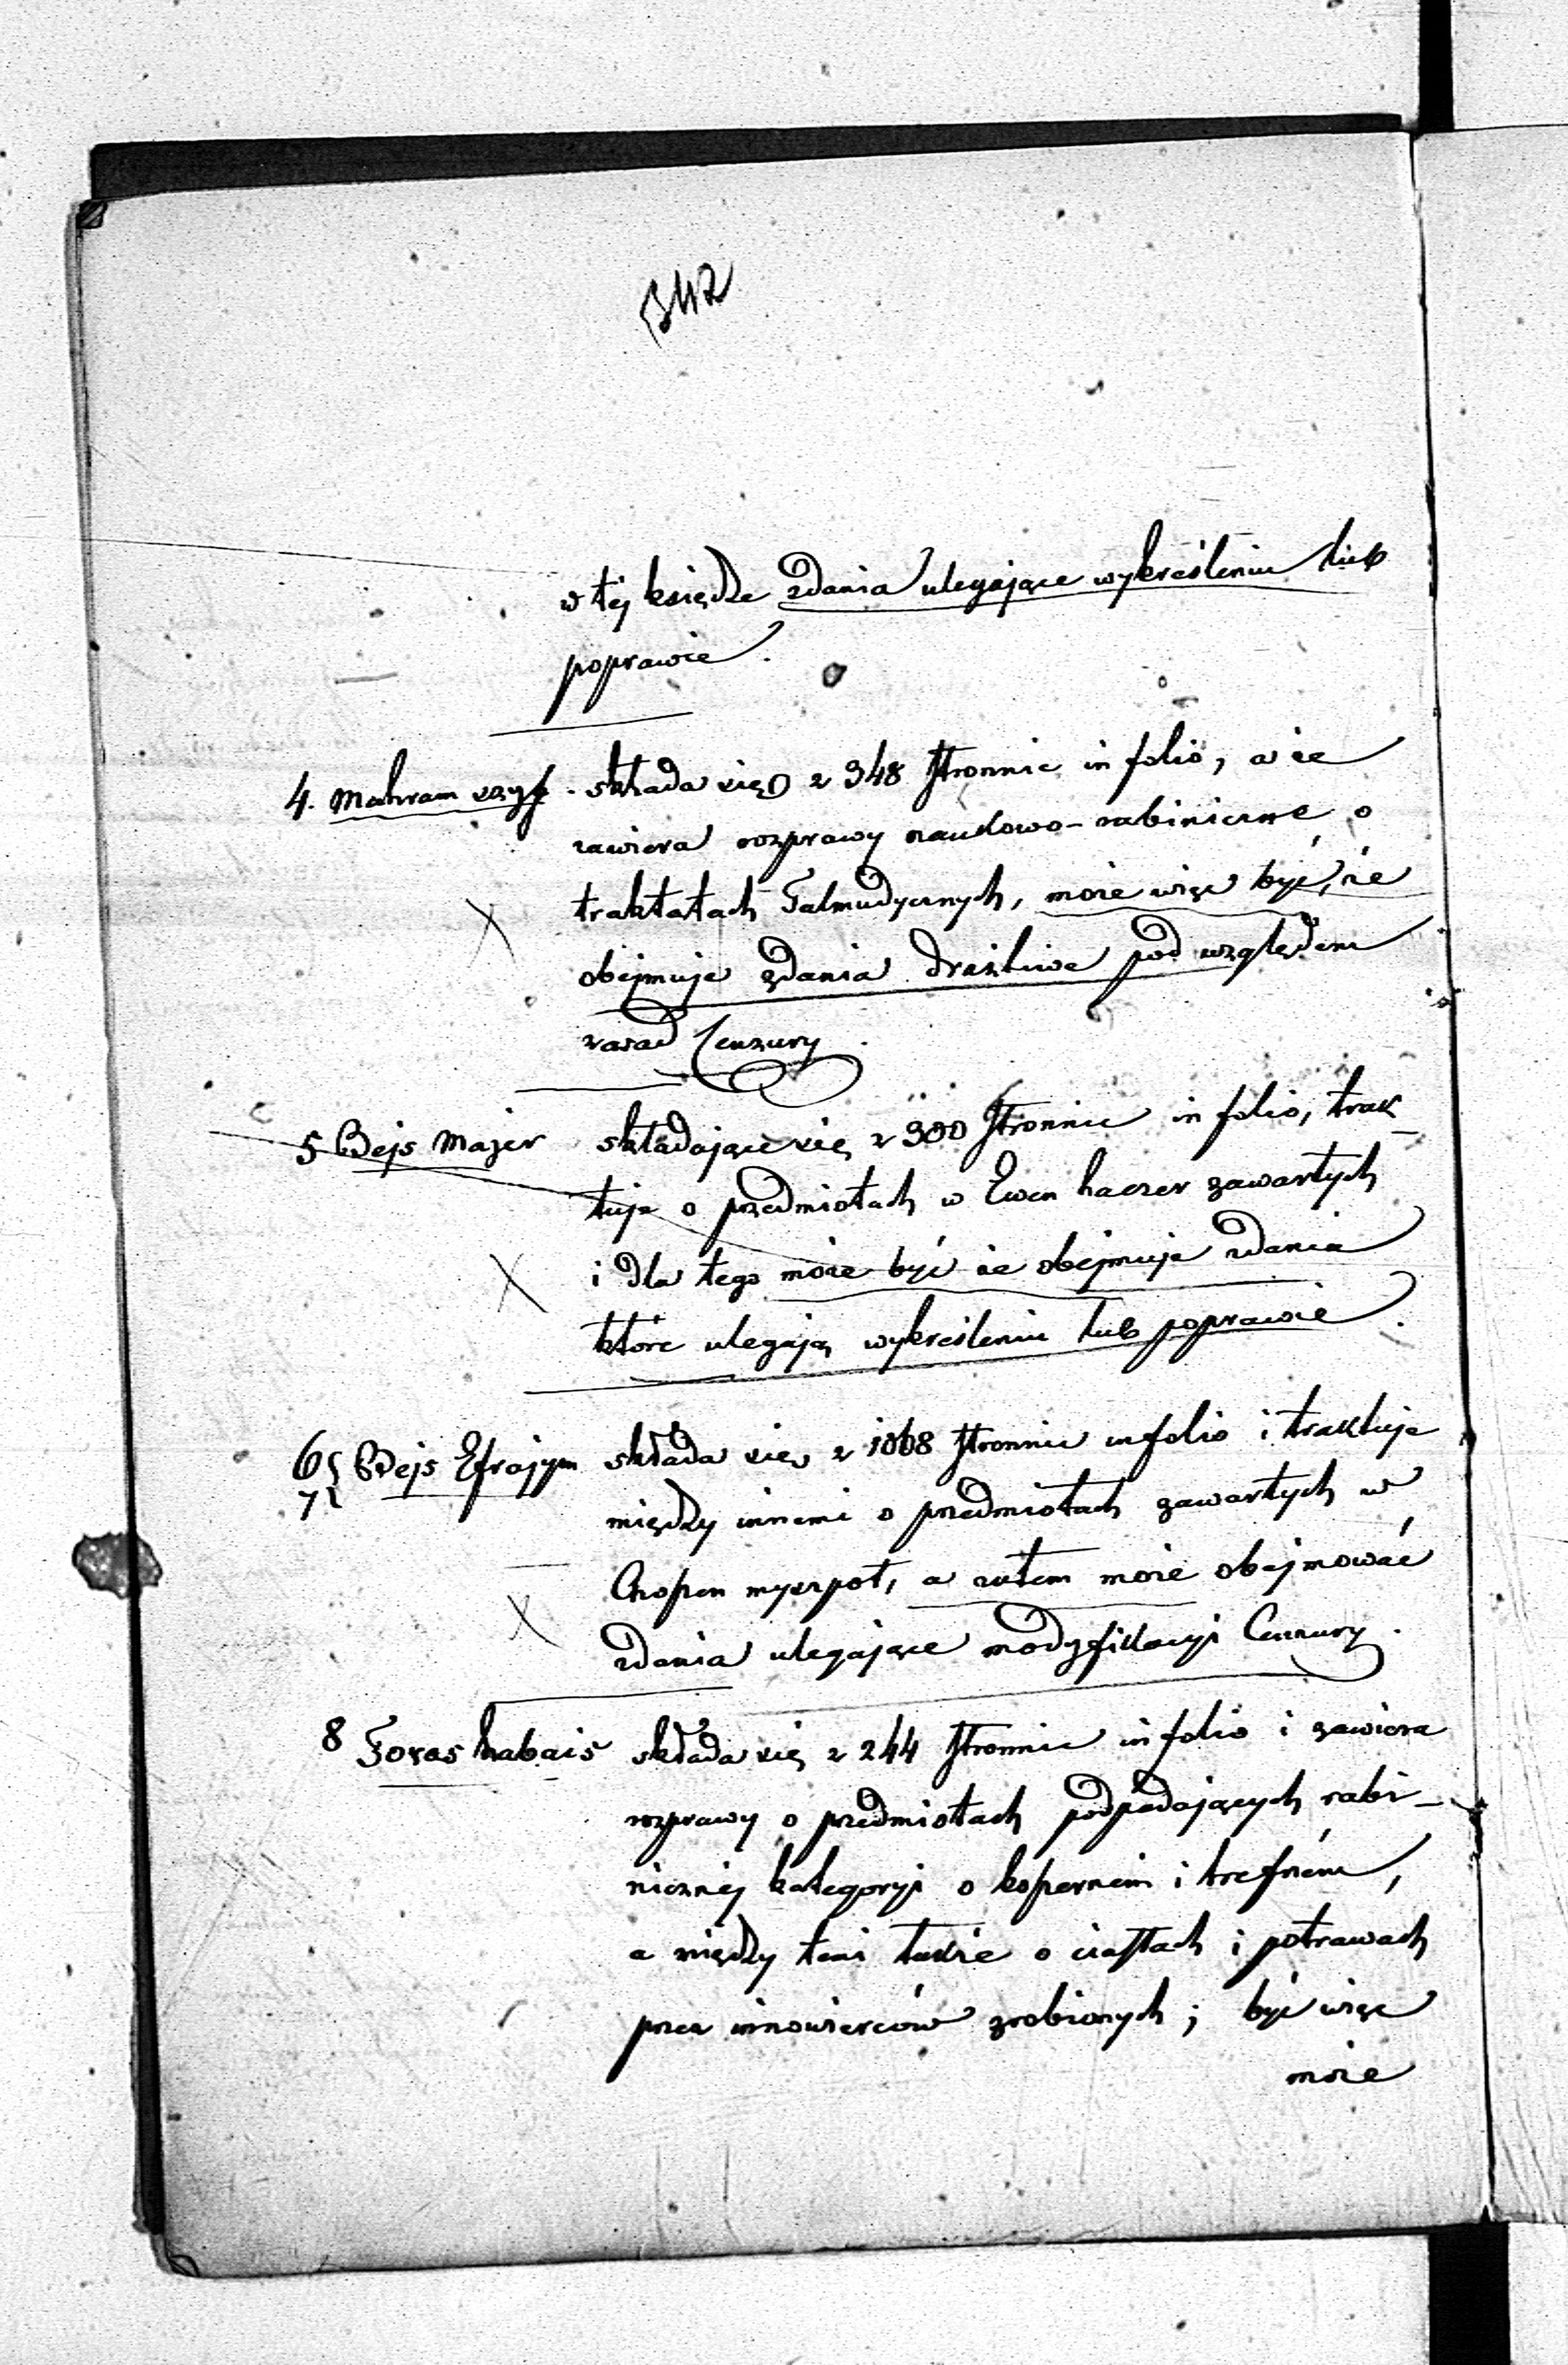 342
w téj księdze zdania ulegające wykreśleniu lub
poprawie.
4. Mahram szyf. składa się z 348 stronnic in folio, a że
zawiera rozprawy naukowo-rabiniczne o
traktatach Talmudycznych, może więc być, że
obejmuje zdania drażliwe pod względem
zasad Cenzury.
5 Bejs Majer składające się z 300 stronnic in folio, trak-
tuje o przedmiotach w Ewen haezer zawartych
i dla tego może być że obejmuje zdania
które ulegają wykreśleniu lub poprawie.
6 7 Bejs Efrajym składa się z 1068 stronnic in folio i traktuje
między innemi o przedmiotach zawartych w
Choszen myszpot, a zatem może obejmować
zdania ulegające modyfikacyi Cenzury.
8 Toras habais składa się z 244 stronnic in folio i zawiera
rozprawy o przedmiotach podpadających rabi-
nicznéj kategoryi o koszerném i trefném,
a między temi także o ciastach i potrawach
przez innowierców zrobionych; być więc
może